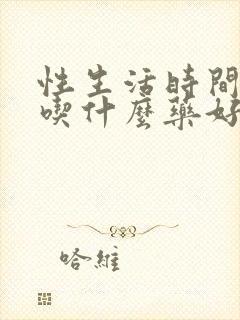 性生活時間
喫什麼藥好
哈維